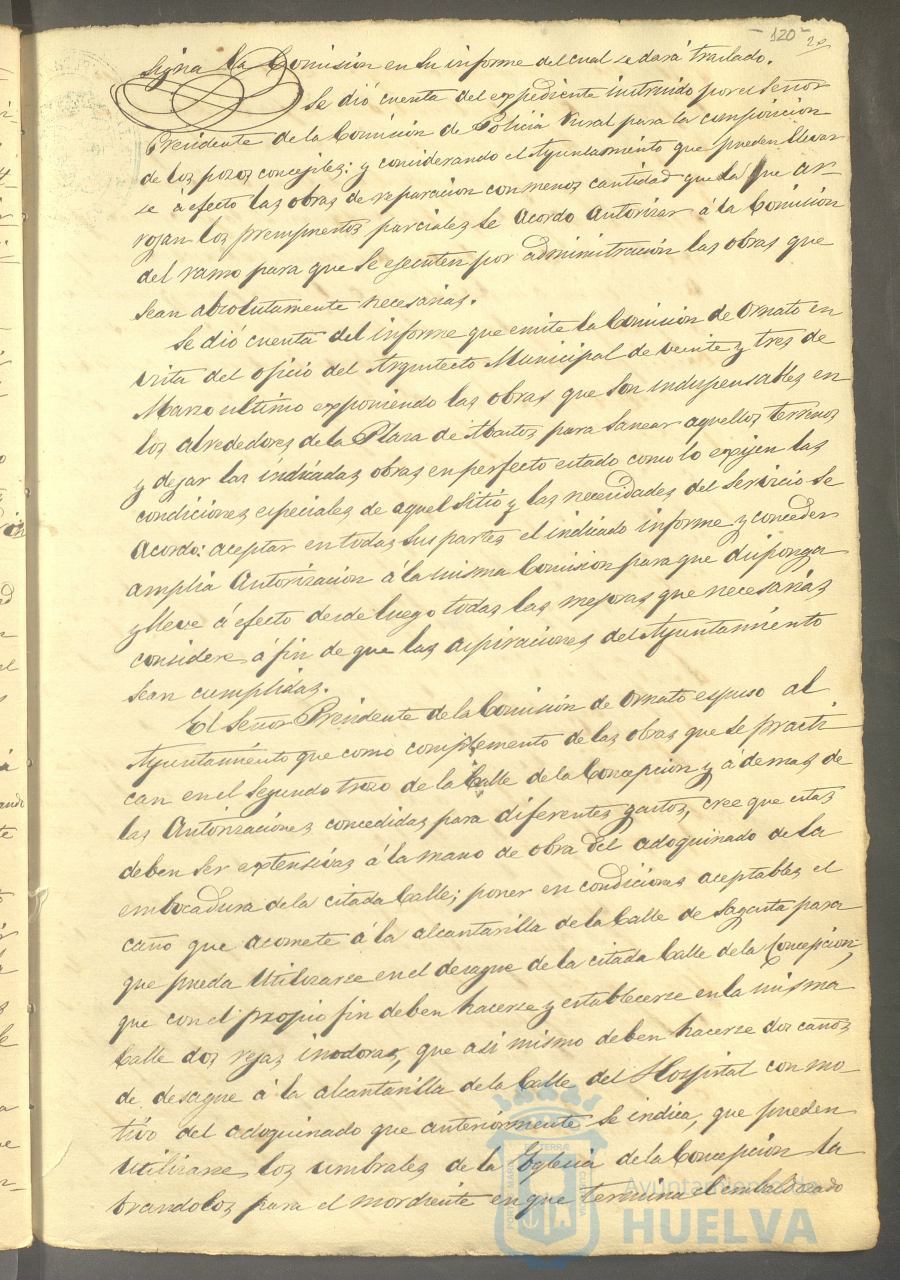 -120-
20
signa la Comision en su informe del cual se dará traslado.
Se dió cuenta del expediente instruido por el Señor
Presidente de la Comision de Policia rural para la composicion
de los pozos concejiles: y considerando el Ayuntamiento que pueden llevar
se á efecto las obras de reparacion con menos cantidad que la que ar-
rojan los presupuestos parciales se Acordo Autorizar á la Comision
del ramo para que se ejecuten por administración las obras que
sean absolutamente necesarias.
Se dió cuenta del informe que emite la Comision de Ornato en
vista del oficio del Arquitecto Municipal de veinte y tres de
Marzo ultimo exponiendo las obras que son indispensables en
los alrededores de la Plaza de Abastos para sanear aquellos terrenos
y dejar las indicadas obras en perfecto estado como lo exijen las
condiciones especiales de aquel sitio y las necesidades del servicio se
Acordo: aceptar en todas sus partes el indicado informe y conceder
amplia Autorizacion á la misma Comision para que disponga
y lleve á efecto desde luego todas las mejoras que necesarias
considere á fin de que las aspiraciones del Ayuntamiento
sean cumplidas.
El Señor Presidente de la Comision de Ornato espuso al
Ayuntamiento que como complemento de las obras que se practi
can en el Segundo trozo de la Calle de la Concepcion y ádemas de
las Autorizaciones concedidas para diferentes gastos, cree que estas
deben ser extensivas á la mano de obra del adoquinado de la
embocadura de la citada Calle; poner en condiciones aceptables el
caño que acomete á la alcantarilla de la Calle de Sagasta para
que pueda Utilizarse en el desague de la citada Calle de la Concepcion,
que con el propio fin deben hacerse y establecerse en la misma
Calle dos rejas inodoras, que asi mismo deben hacerse dos caños
de desague á la alcantarilla de la Calle del Hospital con mo
tivo del adoquinado que anteriormente se indica, que pueden
Utilizarse los umbrales de la Iglesia de la Concepcion la
brandolos para el mordiente en que termina el embaldosado
Ayuntamiento de
HUELVA